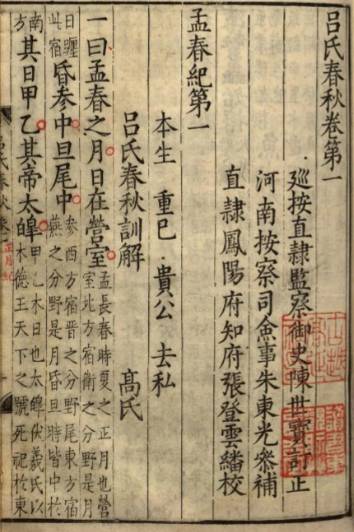 呂氏春秋卷第一
廵按直隷監察御史陳世寶訂正
河南按察司僉事朱東光叅補
直隷鳳陽府知府張登雲繙校
孟春紀第一
本生 重巳 貴公 去私
呂氏春秋訓解 高氏
一曰孟春之月日在營室孟長春時夏之正月也營
室北方宿衛之分野是月
日躔
此宿昏參中旦尾中參西方宿晋之分野尾東方宿
燕之分野是月昏旦時皆中於
南
方其日甲乙其帝太皥甲乙木日也太皥伏羲氏以
木德王天下之號死祀於東